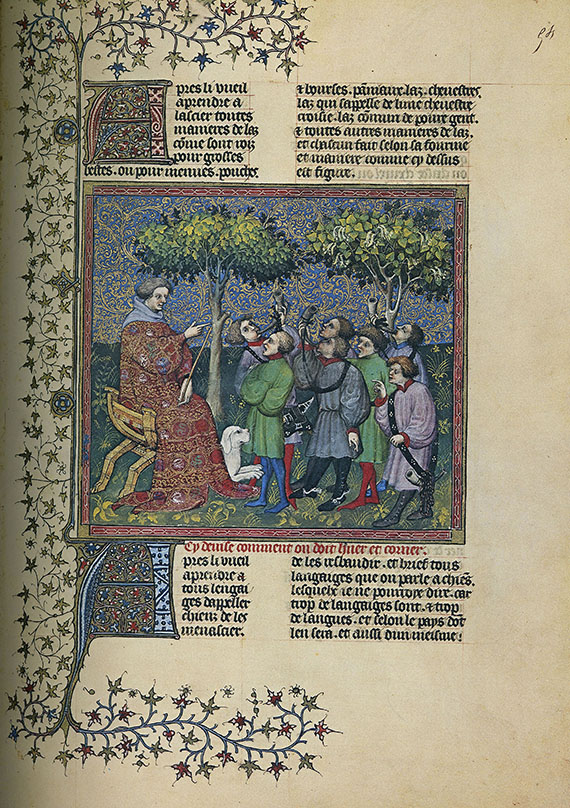 Apres li vueil
aprendre a
lascier toutes
manieres de laz
cõme sont loiz
pour grosses
bestes. ou pour menues. pouches
& bourses. pāniaux. laz. chevestres
laz qui sappelle de lune chevestre
croisie. laz cōmun de poure gent.
& toutes autres manieres de laz.
et chascun fait selon sa fourme
et maniere comme cy dessus
est figure.
Cy devise comment on doit huer et corner.
Apres li vueil
aprendre a
tous lengai
ges dappeller
chiens de les
menascier.
de les resbaudir. et brief tous
langaiges que on parle a chiēs.
lesquelx ie ne pourroye dire. car
trop de langaiges sont. & trop
de langues. et selon le pays dōt
len sera. et aussi dun meisme